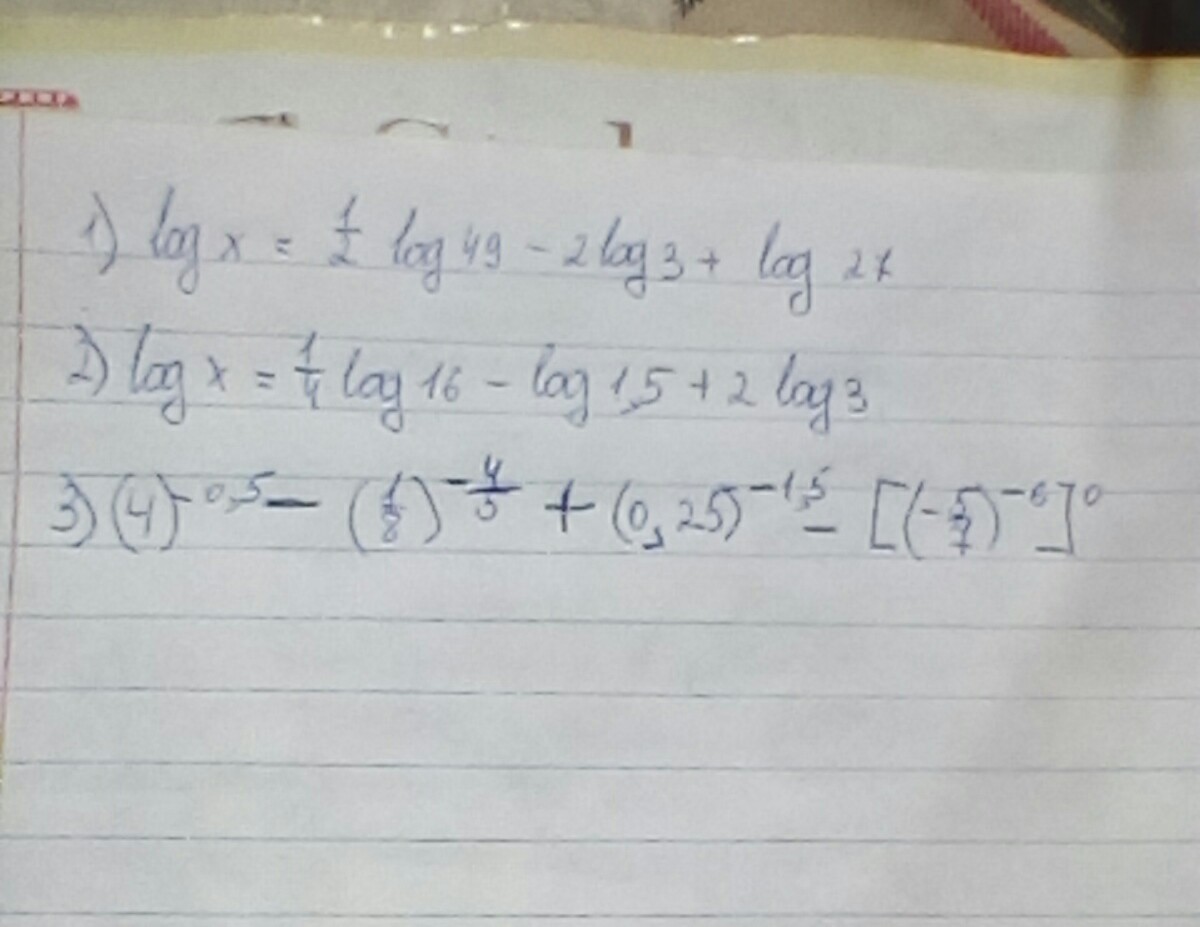 1) log x = 1/2 log 49 - 2 log 3 + log 2x
2) log x = 1/4 log 16 - log 1,5 + 2 log 3
3) (4)^-0,5 - (1/8)^-4/3 + (0,25)^-1,5 - [(-5/7)^-6]^0